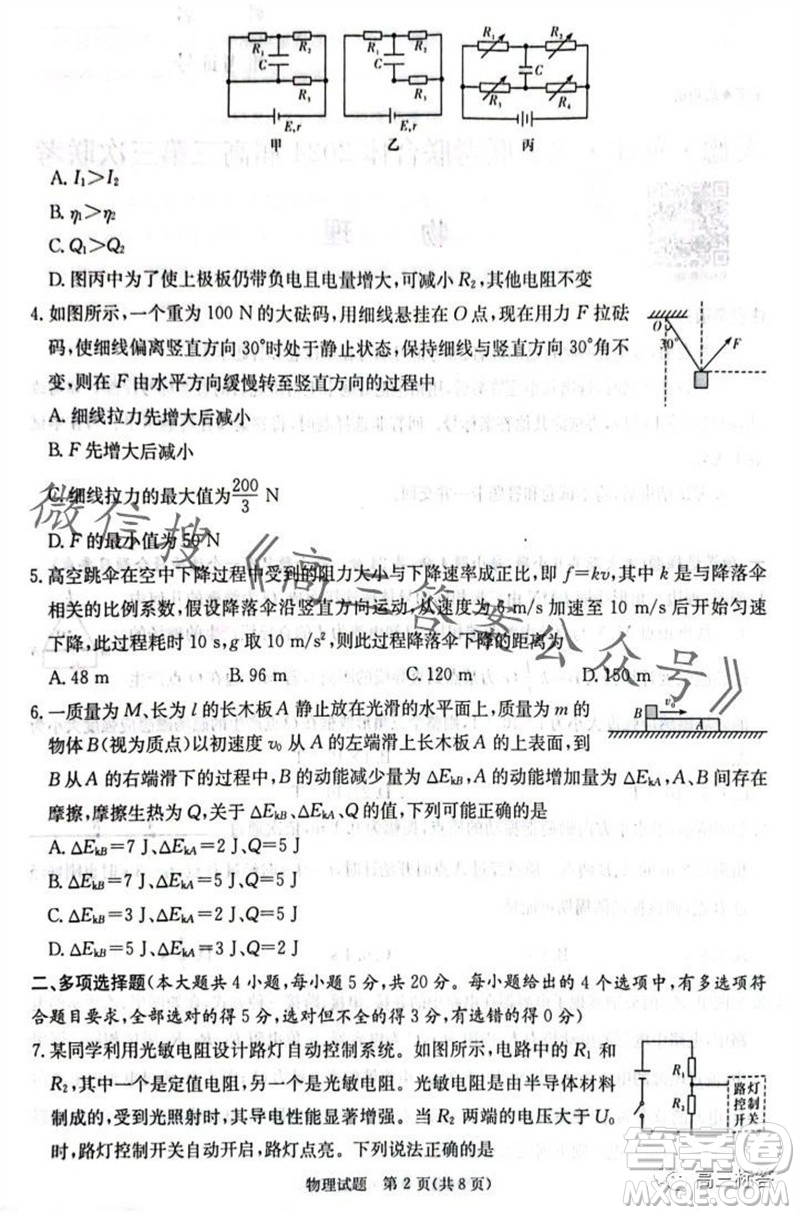 R₁
R₂
C
R₃
E,r
甲
R₁
R₂
C
R₃
E,r
乙
R₁
R₂
C
R₃
R₄
丙
A. I₁>I₂
B. η₁>η₂
C. Q₁>Q₂
D. 图丙中为了使上极板仍带负电且电量增大,可减小 R₂,其他电阻不变
4. 如图所示,一个重为 100 N 的大砝码,用细线悬挂在 O 点,现在用力 F 拉砝
码,使细线偏离竖直方向 30°时处于静止状态,保持细线与竖直方向 30°角不
变,则在 F 由水平方向缓慢转至竖直方向的过程中
O
30°
F
A. 细线拉力先增大后减小
B. F 先增大后减小
C. 细线拉力的最大值为200/3 N
D. F 的最小值为 50 N
5. 高空跳伞在空中下降过程中受到的阻力大小与下降速率成正比,即 f=kv,其中 k 是与降落伞
相关的比例系数,假设降落伞沿竖直方向运动,从速度为 6 m/s 加速至 10 m/s 后开始匀速
下降,此过程耗时 10 s,g 取 10 m/s²,则此过程降落伞下降的距离为
A. 48 m B. 96 m C. 120 m D. 180 m
6. 一质量为 M、长为 l 的长木板 A 静止放在光滑的水平面上,质量为 m 的
物体 B(视为质点)以初速度 v₀ 从 A 的左端滑上长木板 A 的上表面,到
B 从 A 的右端滑下的过程中,B 的动能减少量为 ΔEkB,A、B 间存在
摩擦,摩擦生热为 Q,关于 ΔEkB、ΔEkA、Q 的值,下列可能正确的是
B
v₀
A
A. ΔEkB=7 J、ΔEkA=2 J、Q=5 J
B. ΔEkB=7 J、ΔEkA=5 J、Q=2 J
C. ΔEkB=3 J、ΔEkA=2 J、Q=5 J
D. ΔEkB=5 J、ΔEkA=3 J、Q=2 J
二、多项选择题(本大题共 4 小题,每小题 5 分,共 20 分。每小题给出的 4 个选项中,有多选项符
合题目要求,全部选对的得 5 分,选对但不全的得 3 分,有选错的得 0 分)
7. 某同学利用光敏电阻设计路灯自动控制系统。如图所示,电路中的 R₁ 和
R₂,其中一个是定值电阻,另一个是光敏电阻。光敏电阻是由半导体材料
制成的,受到光照射时,其导电性能显著增强。当 R₂ 两端的电压大于 U₀
时,路灯控制开关自动开启,路灯点亮。下列说法正确的是
R₁
R₂
路灯
控制
开关
物理试题 第 2 页(共 8 页)
微信搜《高三答案公众号》
高三标答
答案圈
MXQE.COM